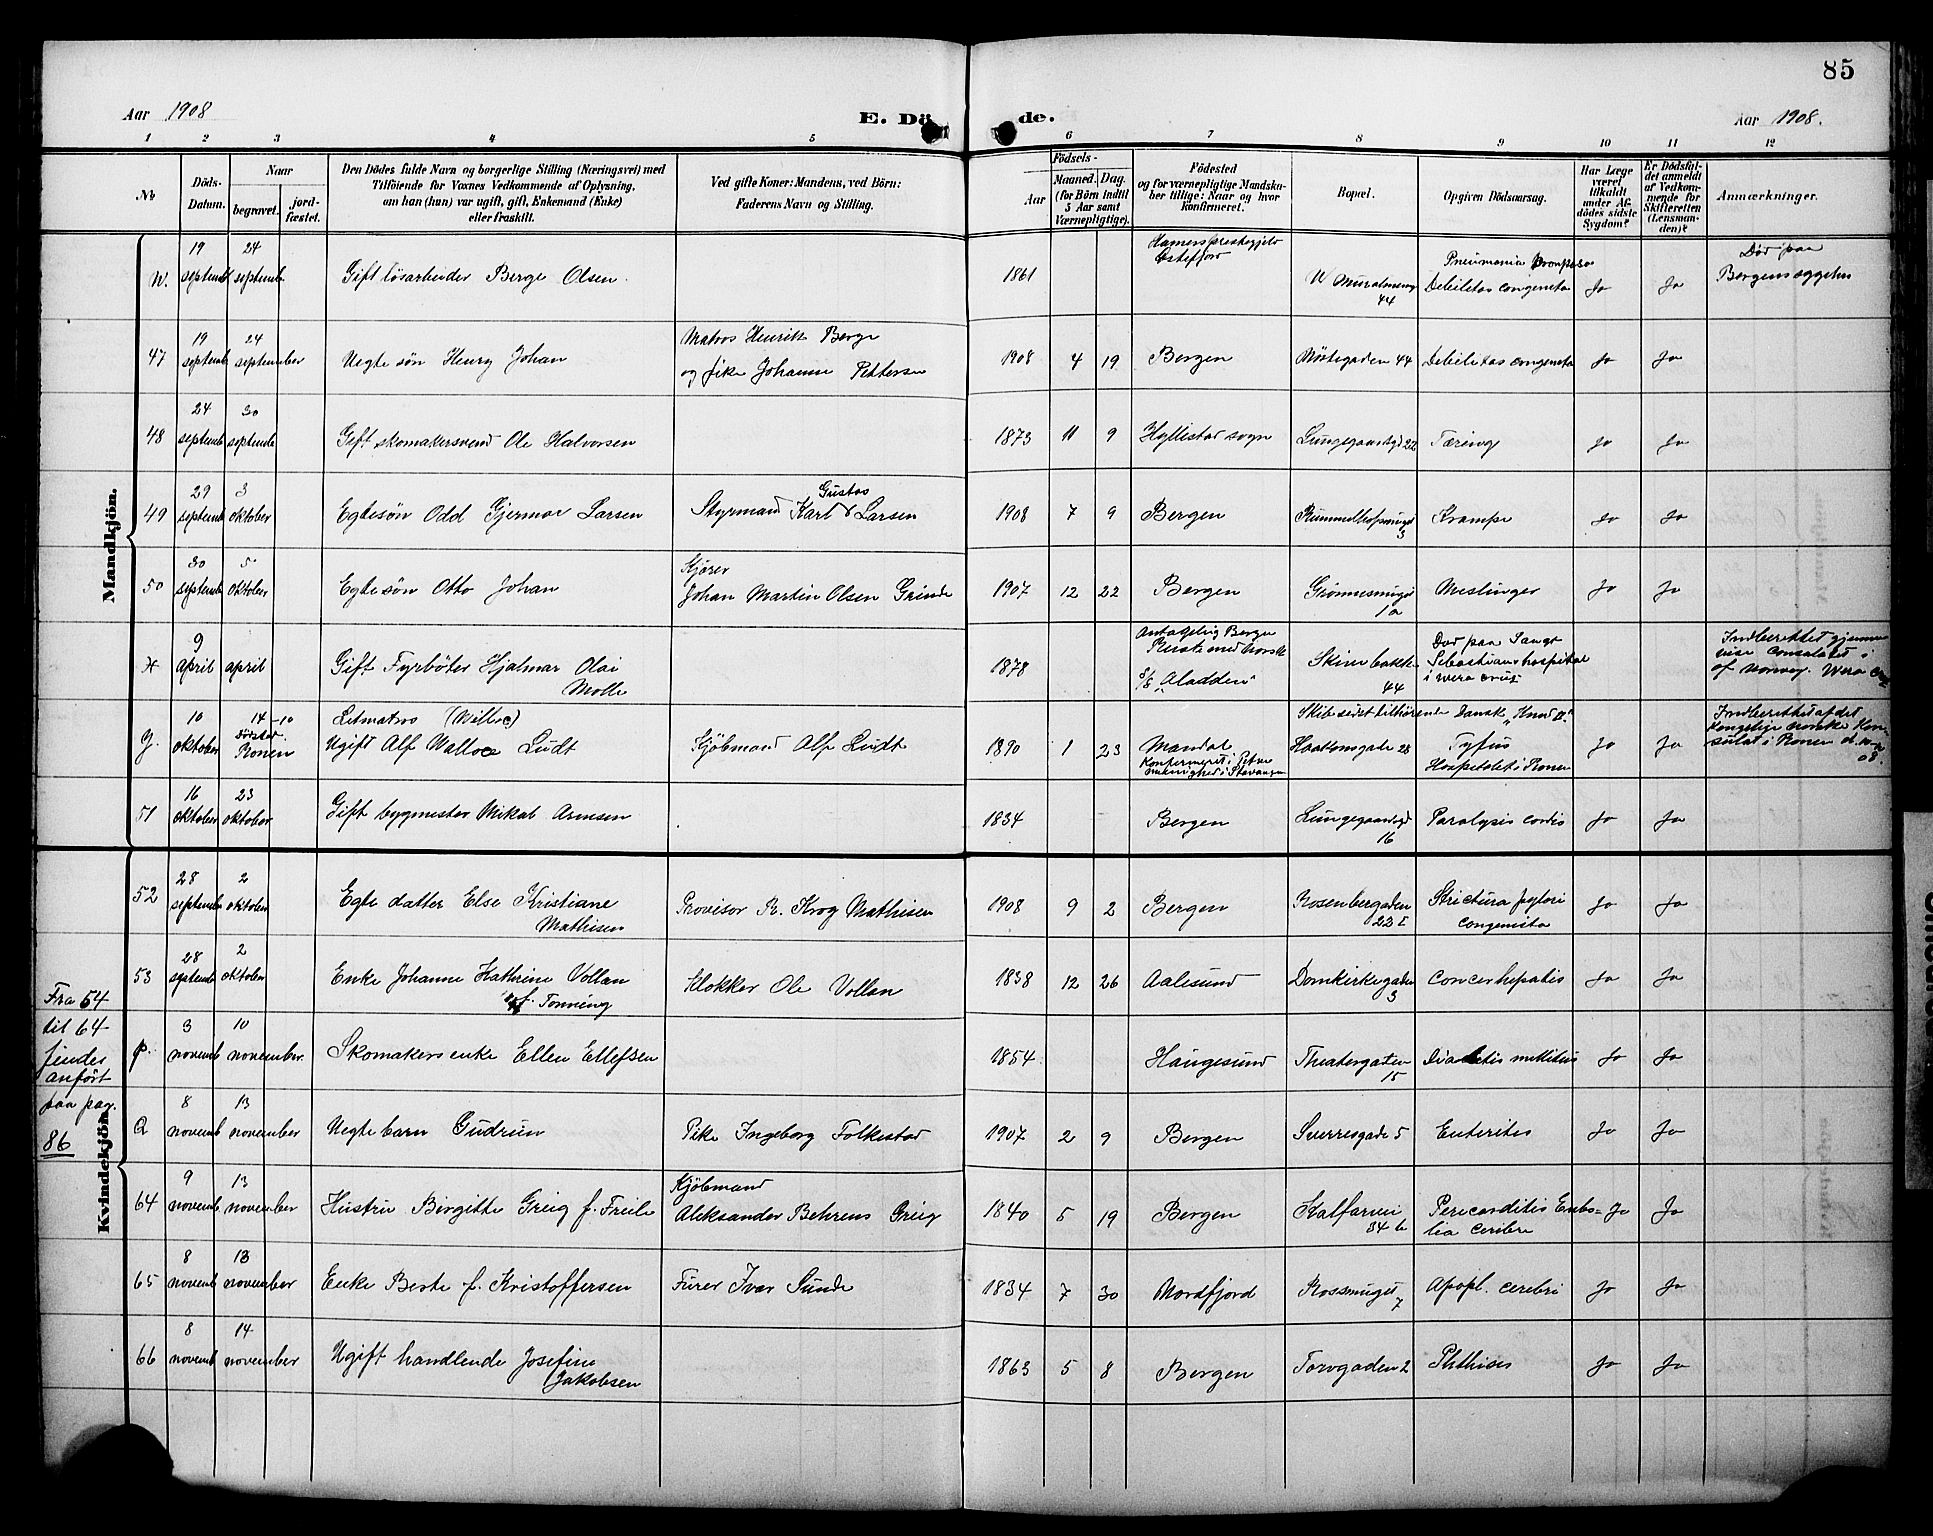 85
Aar 1908 E. Dö de. Aar 1908.
1 2 3 4 5 6 7 8 9 10 11 12
No Döds-Datum. Naar begravet. jordfæstet. Den Dödes fulde Navn og borgerlige Stilling (Næringsvei) med Tilföiende for Voxnes Vedkommende af Oplysning, om han (hun) var ugift, gift, Enkemand (Enke) eller fraskilt. Ved gifte Koner: Mandens, ved Börn: Faderens Navn og Stilling. Födsels- Aar Maaned. Dag. (for Börn indtil 5 Aar samt Værnepligtige). Födested og for værnepligtige Mandskaber tillige: Naar og hvor konfirmeret. Bopæl. Opgiven Dödsaarsag. Har Læge været tilkaldt under Afdödes sidste Sygdom? Er Dödsfaldet anmeldt af Vedkommende for Skifteretten (Lensmanden)? Anmærkninger.
Mandkjön.
W. 19 septemb 24 septemb. Gift løsarbeider Berge Olsen. 1861 Hamers prestegjeld 44 Pneumonia Debiletas congenita Jo Jo Død paa
47 19 septemb 24 september Uegte søn Henry Johan Matros Henrik Berge
og pike Johanne Pettersen 1908 4 19 Bergen 44 Debiletas congenita Jo Jo
48 24 septemb 30 septemb Gift skomakersvend Ole Halvorsen 1873 11 9 Hyllestad sogn Lungegaardsgd 22 Tæring Jo Jo
49 29 septemb 3 oktober Egtesøn Odd Gjermar Larsen Styrmand Karl Gustav Larsen 1908 7 9 Bergen 3 Krampe Jo Jo
50 30 septemb 5 oktober Egtesøn Otto Johan Kjører
Johan Martin Olsen Grinde 1907 12 22 Bergen 1a Meslinger Jo Jo
9 april april Gift Fyrbøter Hjalmar Olai
Molle 1878 Antagelig Bergen
S/S "Aladden" Skivebakk. 44 Død paa Sanct
Sebastians hospital
i Wera Cruz Indberettet gjennem
vise Consulatet i
of Norway. Wera Cruz
G. 10 oktober 14-10 Ronen Letmatros (Willoc)
Ugift Alf Walloe Ludt Kjøbmand Alf Ludt 1890 1 23 Mandal
Konfirmeret i Petri
menighed i Stavanger Skib sidst tilhørende Dansk "Knud II."
Haakonsgate 28 Tyfus
Hospitalet i Ronen Jo Jo Indberettet af det
Kongelige norske Konsulat i Ronen
08.
51 16 oktober 23 oktober Gift bygmester Mikal Arnesen 1834 Bergen Lungegaardsgd
16 Paralysis cordis Jo Jo
Kvindekjön.
52 28 septemb 2 oktober Egte datter Else Kristiane
Mathisen Provisor R. Krog Mathisen 1908 9 2 Bergen Rosenbergaden
22 I Strictura pylori
congenita Jo Jo
53 28 septemb 2 oktober Enke Johanne Kathrine Vollan
f. Tonning Klokker Ole Vollan 1838 12 26 Aalesund Domkirkegaden
3 Concerhepatis Jo Jo
Fra 54
til 64
findes
anført
paa pag.
86
P. 3 novemb 10 november. Skomakersenke Ellen Ellefsen 1854 Haugesund Theatergaten
15 Diabetis mellitus Jo Jo
Q 8 novemb 13 november Uegte barn Gudrun Pike Ingeborg Folkestad 1907 2 9 Bergen Sverresgade 5 Enterites Jo Jo
64 9 novemb 13 november Hustru Birgitte Greig f. Friele Kjøbmand
Aleksander Behrens Greig 1840 5 19 Bergen Kalfarvei
34 b Pericarditis Embo=
lia cerebri Jo Jo
65 8 novemb 13 november Enke Berte f. Kristoffersen Furer Ivar Sunde 1834 7 30 Nordfjord Rossmuget
7 Apopl. cerebri Jo Jo
66 8 novemb 14 november Ugift handlende Josefine
Jakobsen 1863 5 8 Bergen Torvgaden 2 Phthises Jo Jo